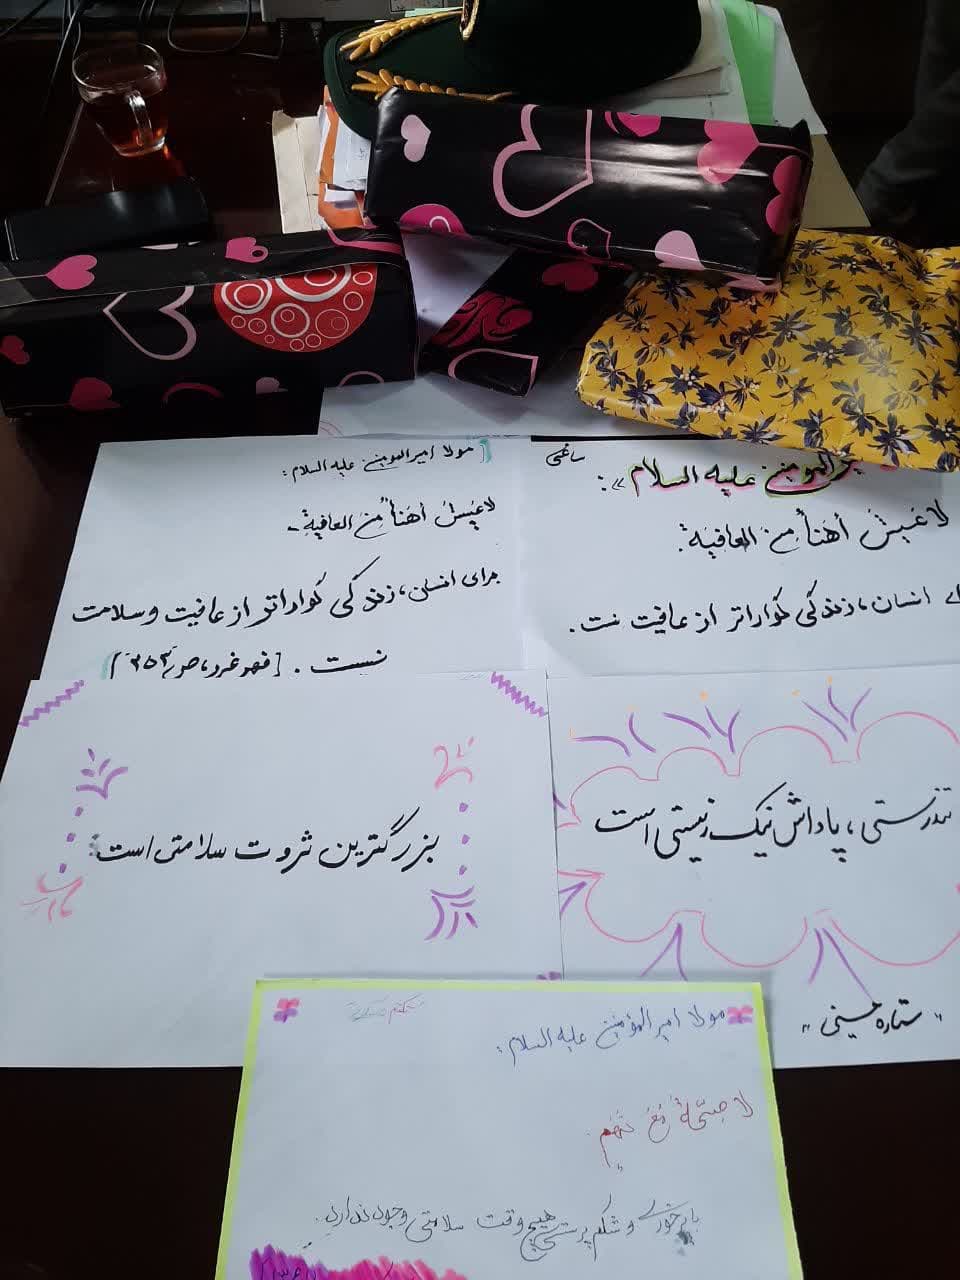 مولا امیرالمومنین علیه السلام:
لا عَیشَ أهنأُ مِنَ العافیةِ
برای انسان، زندگی گواراتر از عافیت و سلامت
نیست. [فهر غرر، ص ۲۵۳]
یرالمومنین علیه السلام»:
لا عَیشَ أهنأُ مِنَ العافیَة.
ی انسان، زندگی گواراتر از عافیت نست.
بزرگترین ثروت سلامتی است
تندرستی، پاداش نیک زیستی است
"ستاره حسینی"
مولا امیرالمؤمنین علیه السلام:
لا صِحّةَ مَعَ نَهَمٍ
پرخوری و شکم پرستی هیچ وقت سلامتی وجود ندارد.